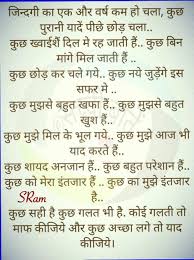 जिन्दगी का एक और वर्ष कम हो चला, कुछ
पुरानी यादें पीछे छोड़ चला..
कुछ ख्वाईशें दिल मे रह जाती हैं.. कुछ बिन
मांगे मिल जाती हैं ..
कुछ छोड़ कर चले गये.. कुछ नये जुड़ेंगे इस
सफर मे ..
कुछ मुझसे बहुत खफा हैं.. कुछ मुझसे बहुत
खुश हैं..
कुछ मुझे मिल के भूल गये.. कुछ मुझे आज भी
याद करते हैं..
कुछ शायद अनजान हैं.. कुछ बहुत परेशान हैं..
कुछ को मेरा इंतजार हैं .. कुछ का मुझे इंतजार
है..
SRam
कुछ सही है कुछ गलत भी है. कोई गलती तो
माफ कीजिये और कुछ अच्छा लगे तो याद
कीजिये।